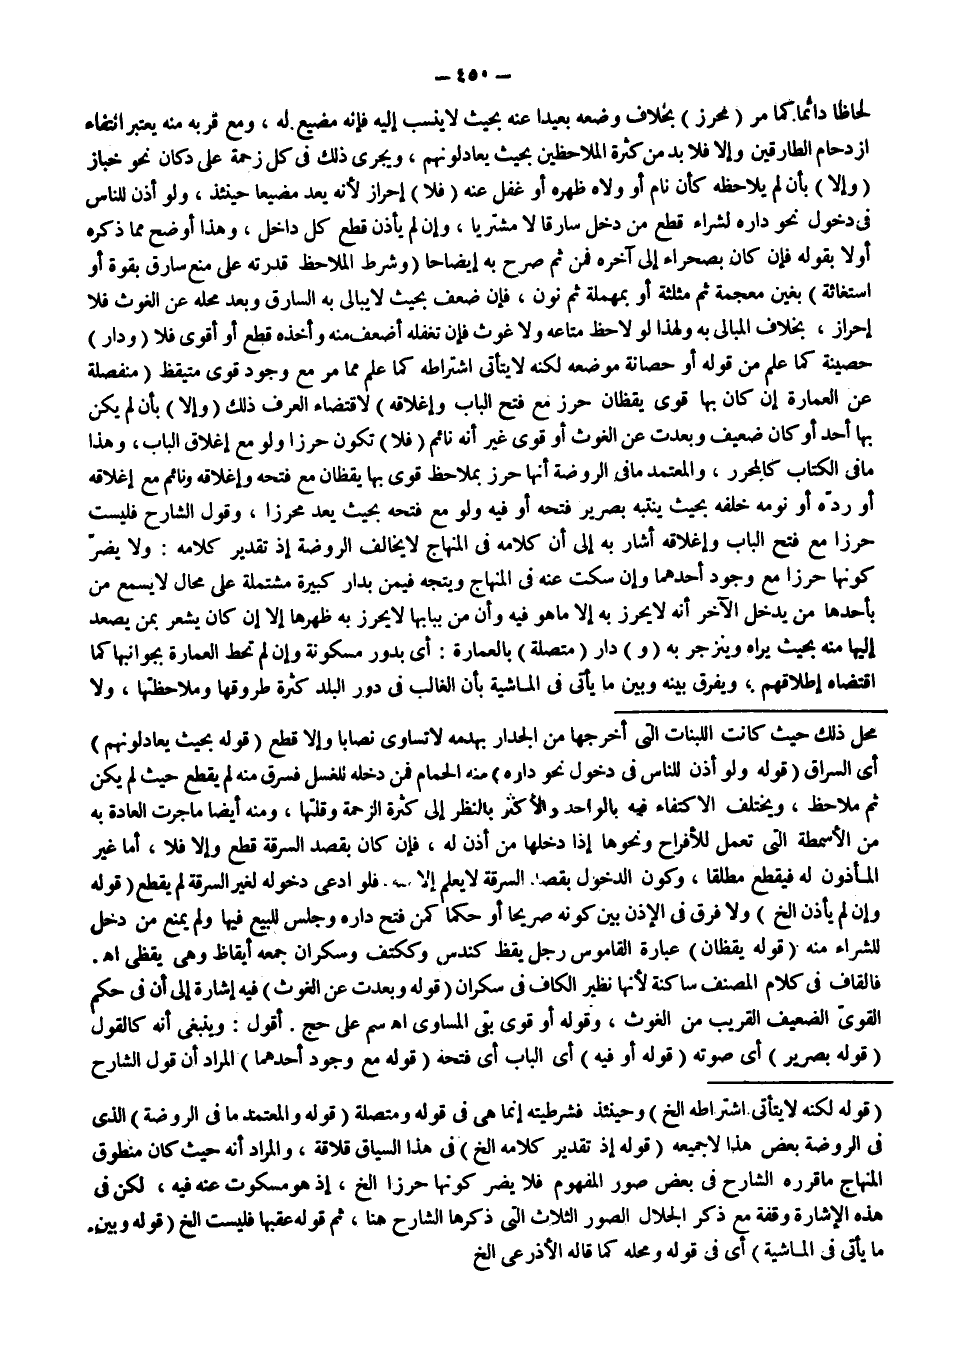 — ٤٥٠ —
لحاظا دائما. كما مر ( محرز ) بخلاف وضعه بعيدا عنه بحيث لاينسب إليه فإنه مضيع له ، ومع قربه منه يعتبر انتفاء
ازدحام الطارقين وإلا فلا بد من كثرة الملاحظين بحيث يعادلونهم ، ويجرى ذلك فى كل زحمة على دكان نحو خباز
( وإلا ) بأن لم يلاحظه كأن نام أو ولاه ظهره أو غفل عنه ( فلا ) إحراز لأنه يعد مضيعا حينئذ ، ولو أذن للناس
فى دخول نحو داره لشراء قطع من دخل سارقا لا مشتريا ، وإن لم يأذن قطع كل داخل ، وهذا أوضح مما ذكره
أولا بقوله فإن كان بصحراء إلى آخره فمن ثم صرح به إيضاحا ( وشرط الملاحظ قدرته على منع سارق بقوة أو
استغاثة ) بغين معجمة ثم مثلثة أو بمهملة ثم نون ، فإن ضعف بحيث لايبالى به السارق وبعد محله عن الغوث فلا
إحراز ، بخلاف المبالى به ولهذا لو لاحظ متاعه ولا غوث فإن تغفله أضعف منه وأخذه قطع أو أقوى فلا ( ودار )
حصينة كما علم من قوله أو حصانة موضعه لكنه لايتأتى اشتراطه كما علم مما مر مع وجود قوى متيقظ ( منفصلة
عن العمارة إن كان بها قوى يقظان حرز مع فتح الباب وإغلاقه ) لاقتضاء العرف ذلك ( وإلا ) بأن لم يكن
بها أحد أو كان ضعيف وبعدت عن الغوث أو قوى غير أنه نائم ( فلا ) تكون حرزا ولو مع إغلاق الباب ، وهذا
مافى الكتاب كالمحرر ، والمعتمد مافى الروضة أنها حرز بملاحظ قوى بها يقظان مع فتحه وإغلاقه ونائم مع إغلاقه
أو ردّه أو نومه خلفه بحيث ينتبه بصرير فتحه أو فيه ولو مع فتحه بحيث يعد محرزا ، وقول الشارح فليست
حرزا مع فتح الباب وإغلاقه أشار به إلى أن كلامه فى المنهاج لايخالف الروضة إذ تقدير كلامه : ولا يضرّ
كونها حرزا مع وجود أحدهما وإن سكت عنه فى المنهاج ويتجه فيمن بدار كبيرة مشتملة على محال لايسمع من
بأحدها من يدخل الآخر أنه لايحرز به إلا ماهو فيه وأن من ببابها لايحرز به ظهرها إلا إن كان يشعر بمن يصعد
إليها منه بحيث يراه وينزجر به ( و ) دار ( متصلة ) بالعمارة : أى بدور مسكونة وإن لم تحط العمارة بجوانبها كما
اقتضاه إطلاقهم ، ويفرق بينه وبين ما يأتى فى الماشية بأن الغالب فى دور البلد كثرة طروقها وملاحظتها ، ولا
محل ذلك حيث كانت اللبنات التى أخرجها من الجدار بهدمه لاتساوى نصابا وإلا قطع ( قوله بحيث يعادلونهم )
أى السراق ( قوله ولو أذن للناس فى دخول نحو داره ) منه الحمام فمن دخله للغسل فسرق منه لم يقطع حيث لم يكن
ثم ملاحظ ، ويختلف الاكتفاء فيه بالواحد والأكثر بالنظر إلى كثرة الزحمة وقلتها ، ومنه أيضا ماجرت العادة به
من الأسمطة التى تعمل للأفراح ونحوها إذا دخلها من أذن له ، فإن كان بقصد السرقة قطع وإلا فلا ، أما غير
المأذون له فيقطع مطلقا ، وكون الدخول بقصد السرقة لايعلم إلا . فلو ادعى دخوله لغير السرقة لم يقطع ( قوله
وإن لم يأذن الخ ) ولا فرق فى الإذن بين كونه صريحا أو حكما كمن فتح داره وجلس للبيع فيها ولم يمنع من دخل
للشراء منه ( قوله يقظان ) عبارة القاموس رجل يقظ كندس وككتف وسكران جمعه أيقاظ وهى يقظى اه .
فالقاف فى كلام المصنف ساكنة لأنها نظير الكاف فى سكران ( قوله وبعدت عن الغوث ) فيه إشارة إلى أن فى حكم
القوىّ الضعيف القريب من الغوث ، وقوله أو قوى بقى المساوى اه سم على حج . أقول : وينبغى أنه كالقول
( قوله بصرير ) أى صوته ( قوله أو فيه ) أى الباب أى فتحه ( قوله مع وجود أحدهما ) المراد أن قول الشارح
( قوله لكنه لايتأتى اشتراطه الخ ) وحينئذ فشرطيته إنما هى فى قوله ومتصلة ( قوله والمعتمد ما فى الروضة ) الذى
فى الروضة بعض هذا لاجميعه ( قوله إذ تقدير كلامه الخ ) فى هذا السياق قلاقة ، والمراد أنه حيث كان منطوق
المنهاج ماقرره الشارح فى بعض صور المفهوم فلا يضر كونها حرزا الخ ، إذ هو مسكوت عنه فيه ، لكن فى
هذه الإشارة وقفة مع ذكر الجلال الصور الثلاث التى ذكرها الشارح هنا ، ثم قوله عقبها فليست الخ ( قوله وبين
ما يأتى فى الماشية ) أى فى قوله ومحله كما قاله الأذرعى الخ